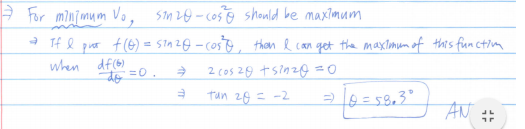 ⇒ For minimum V₀, sin2θ - cos²θ should be maximum
⇒ If I put f(θ) = sin2θ - cos²θ, then I can get the maximum of this function
when df(θ)/dθ = 0. ⇒ 2 cos 2θ + sin2θ = 0
⇒ tan 2θ = -2 ⇒ θ = 58.3°
AN